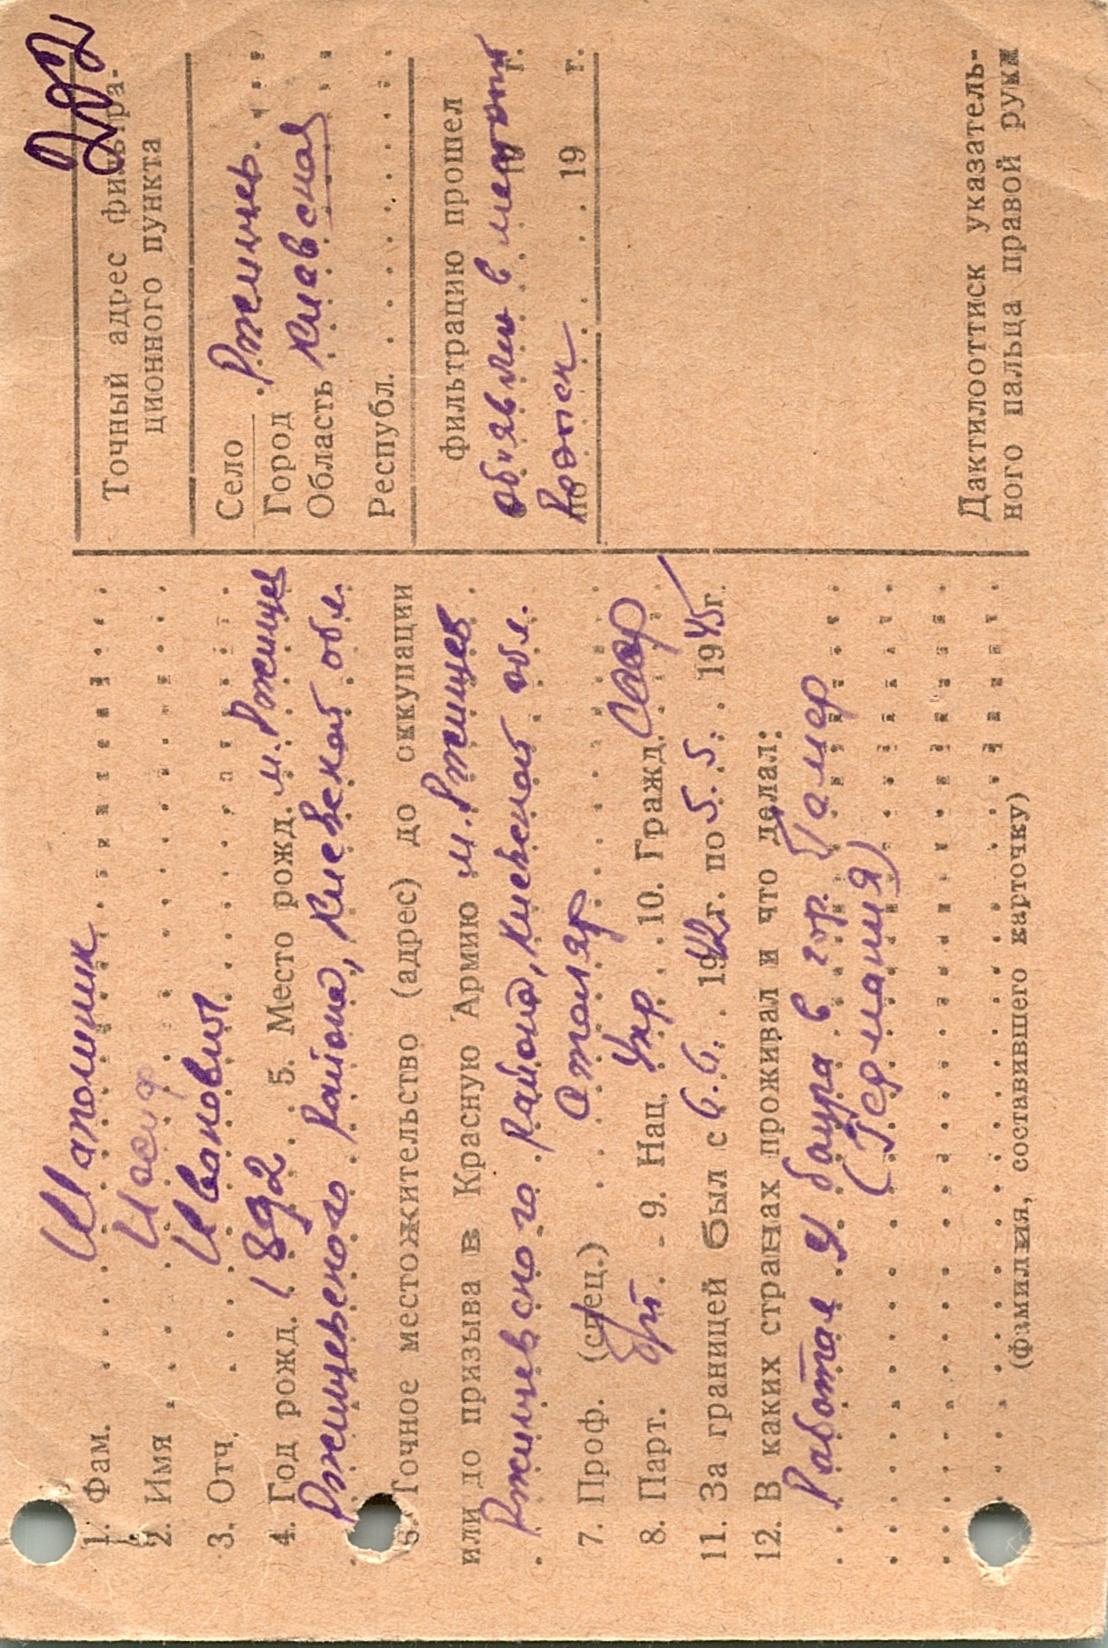 1. Фам. Шапошник
2. Имя Иосиф
3. Отч. Иванович
4. Год рожд. 1892 5. Место рожд. м. Ржищев
Ржищевского района, Киевской обл.
6. Точное местожительство (адрес) до оккупации
или до призыва в Красную Армию м. Ржищев
Ржищевского района, Киевской обл.
7. Проф. (спец.) Столяр
8. Парт. б/п 9. Нац. Укр 10. Гражд. СССР
11. За границей был с 6.6. 1942г. по 5.5. 1945г.
12. В каких странах проживал и что делал:
Работал у баура в гор.
(Германия)
(фамилия, составившего карточку)
292
Точный адрес фильтра-
ционного пункта
Село Ржищев
Город
Область Киевская
Республ.
фильтрацию прошел
г.
по 19 г.
Дактилооттиск указатель-
ного пальца правой руки